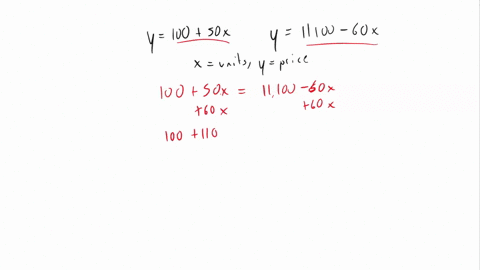 y = 100 + 50x y = 11100 - 60x
x = units, y = price
100 + 50x = 11,100 - 60x
+60x +60x
100 + 110